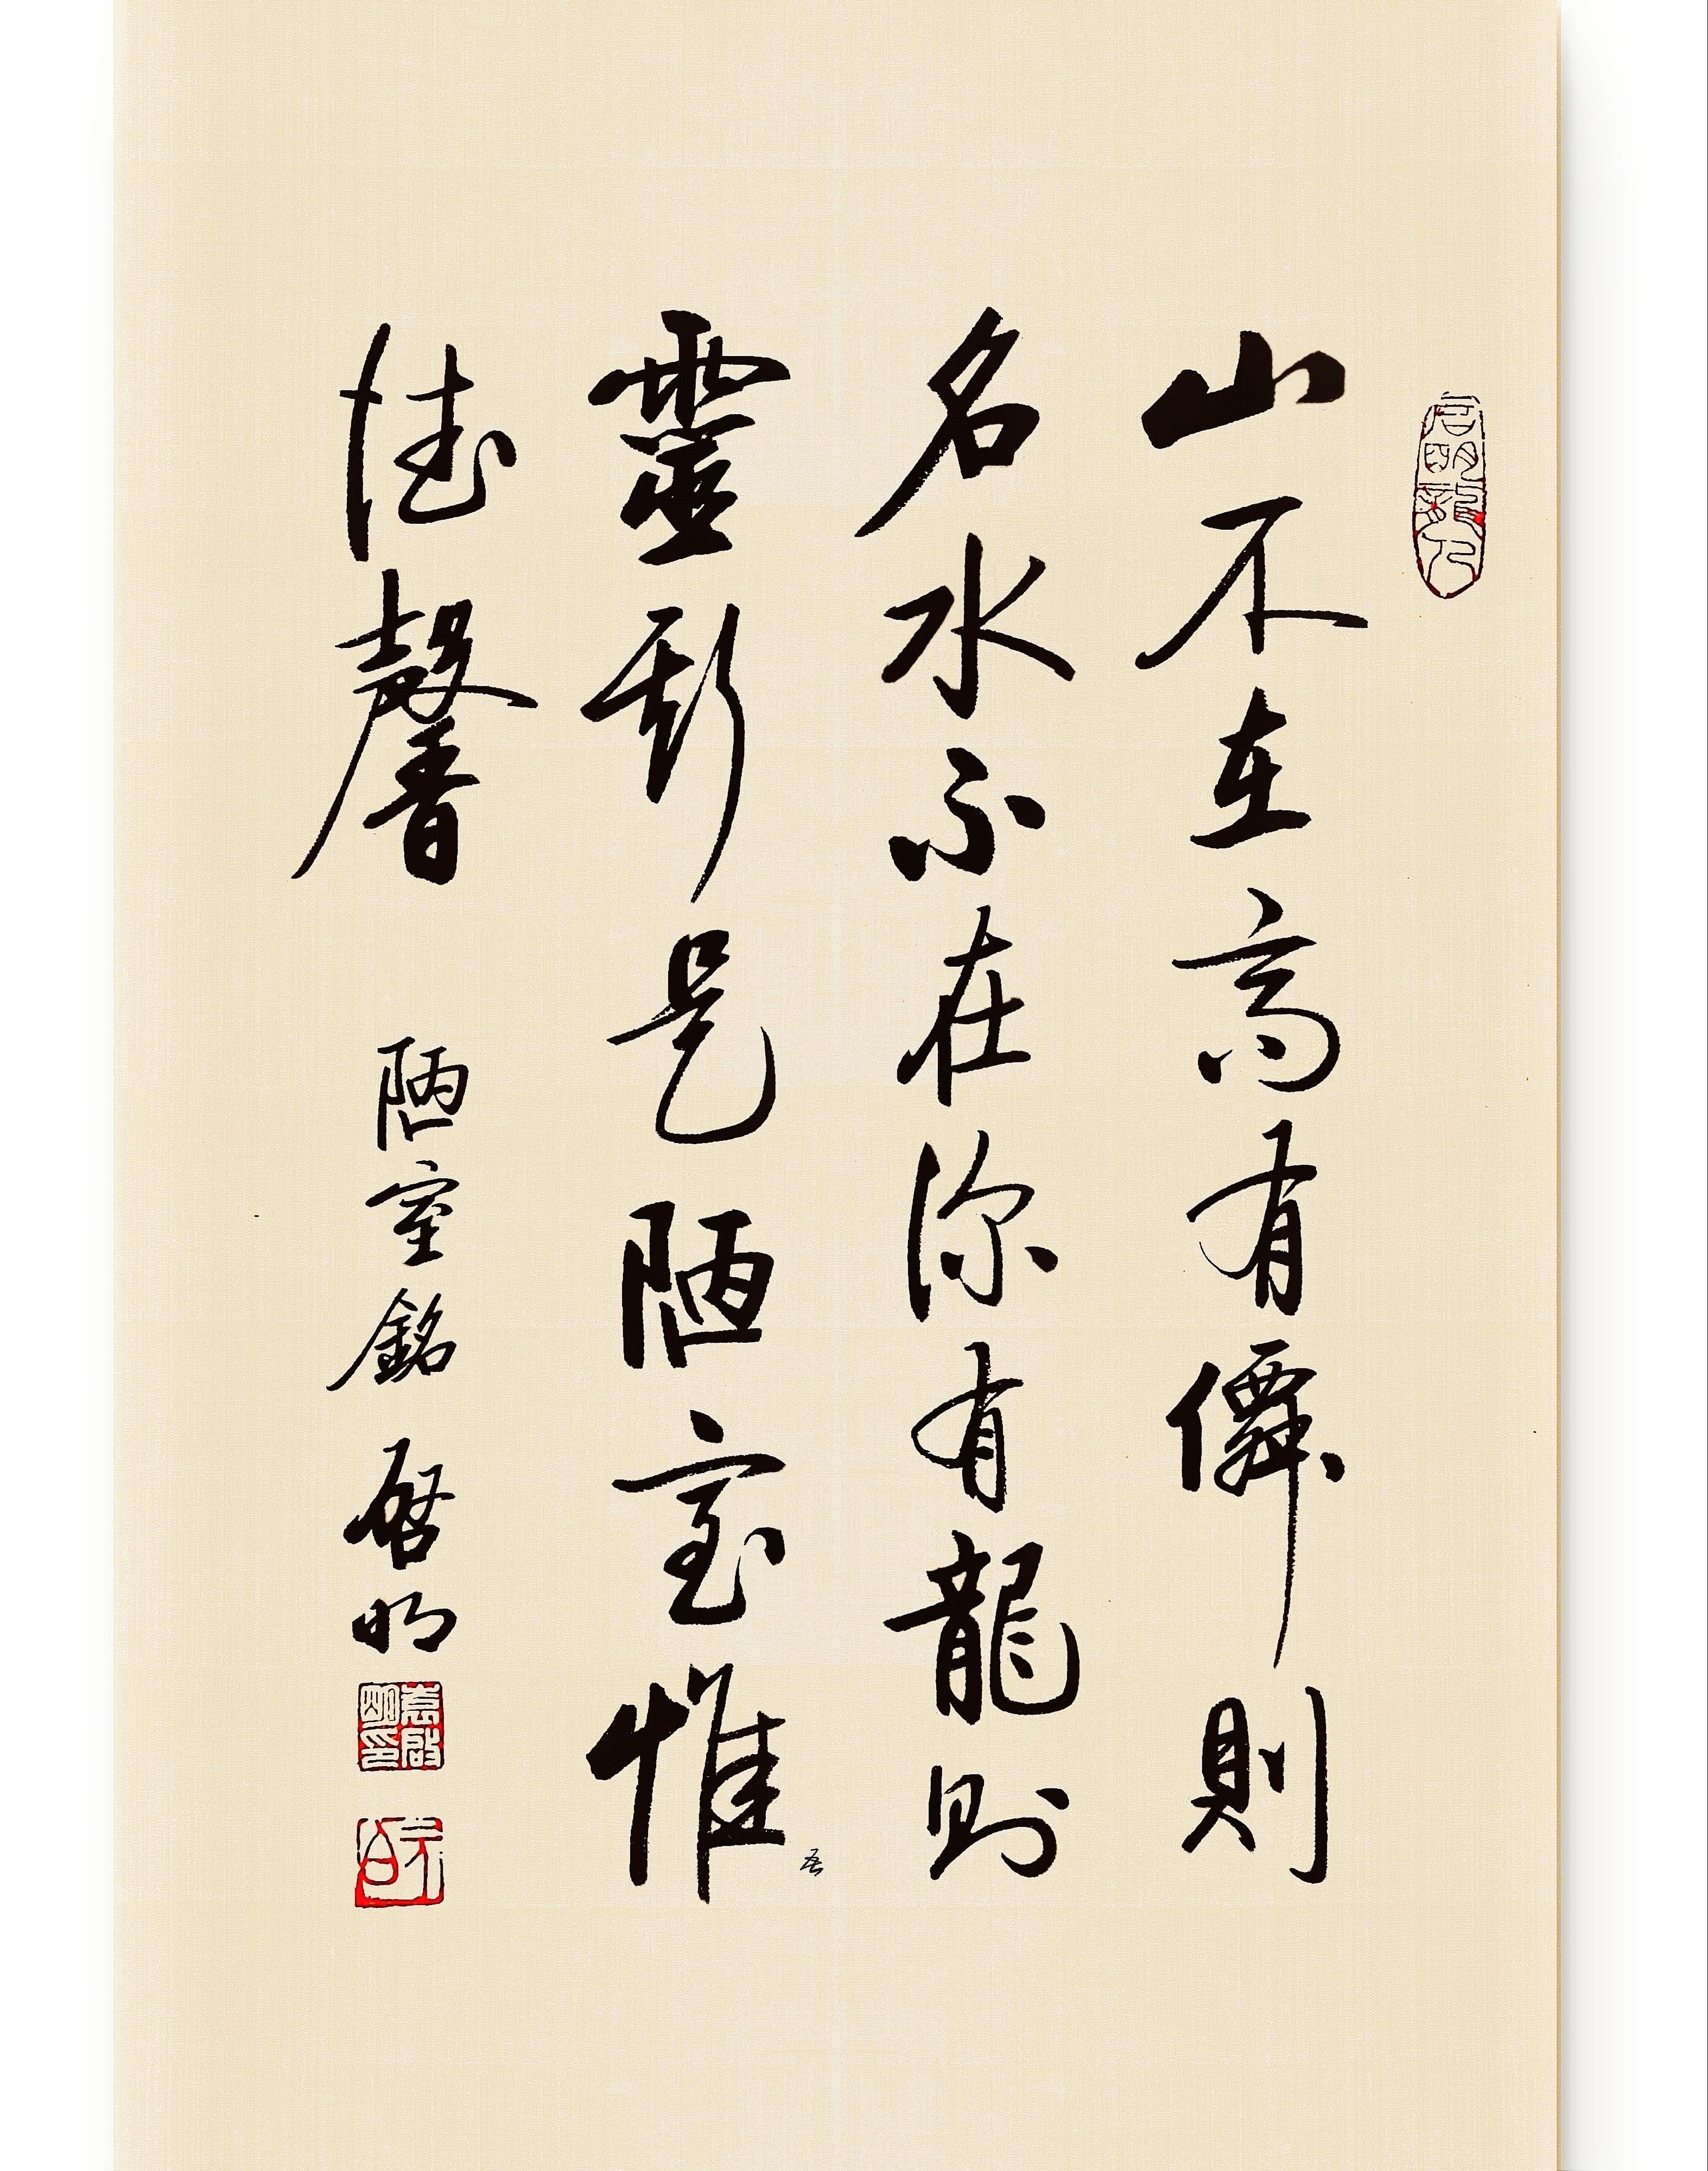 山不在高有僊則
名水不在深有龍則
靈斯是陋室惟
吾
德馨
陋室銘 啓明
袁啟明印